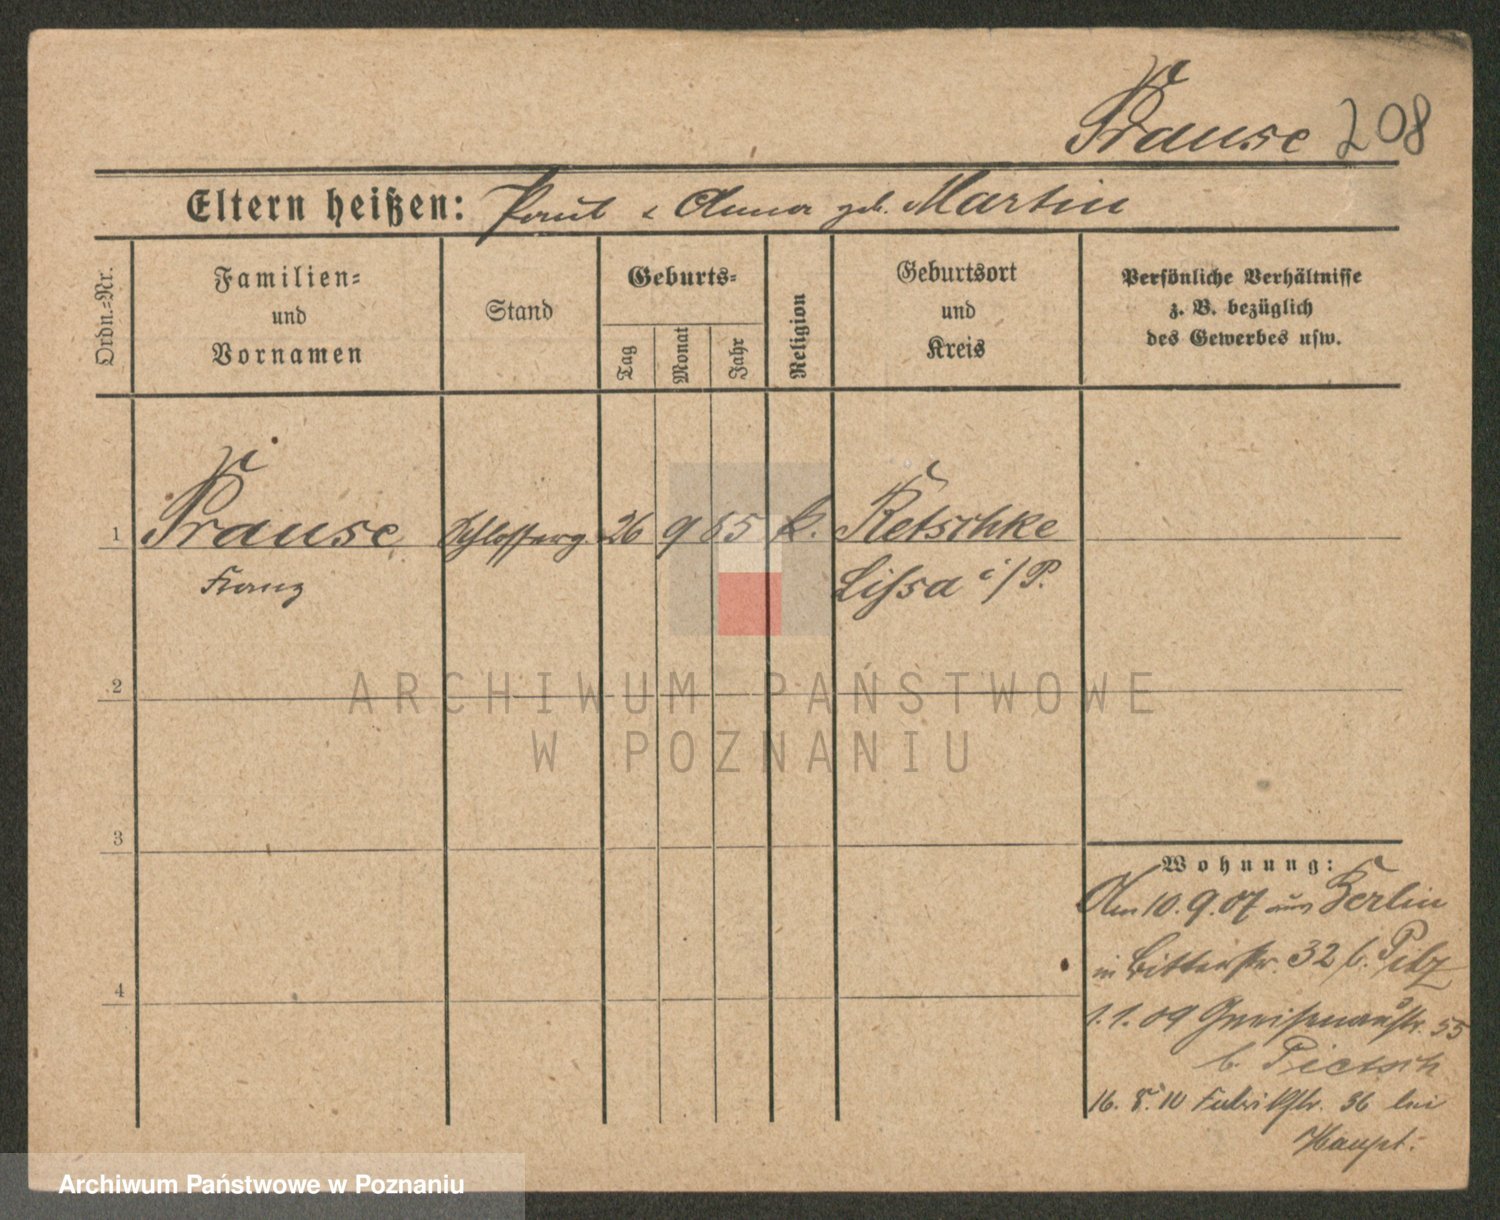 Krause 208
Eltern heißen: Paul & Anna geb. Martin
Ordn.-Nr.
Familien-
und
Vornamen
Stand
Geburts-
Tag
Monat
Jahr
Religion
Geburtsort
und
Kreis
Persönliche Verhältnisse
z. B. bezüglich
des Gewerbes usw.
1 Krause Schlosserg. 26 9 65 k. Retschke
Franz Lissa i/P.
2
3
4
Wohnung:
Am 10.9.07 aus Berlin
in Bitterstr. 32 b. Pilz
1.1.09 Gneisenaustr. 55
b. Pietsch
16. 8. 10 Fabrikstr. 36 bei
Haupt.
ARCHIWUM PAŃSTWOWE
W POZNANIU
Archiwum Państwowe w Poznaniu